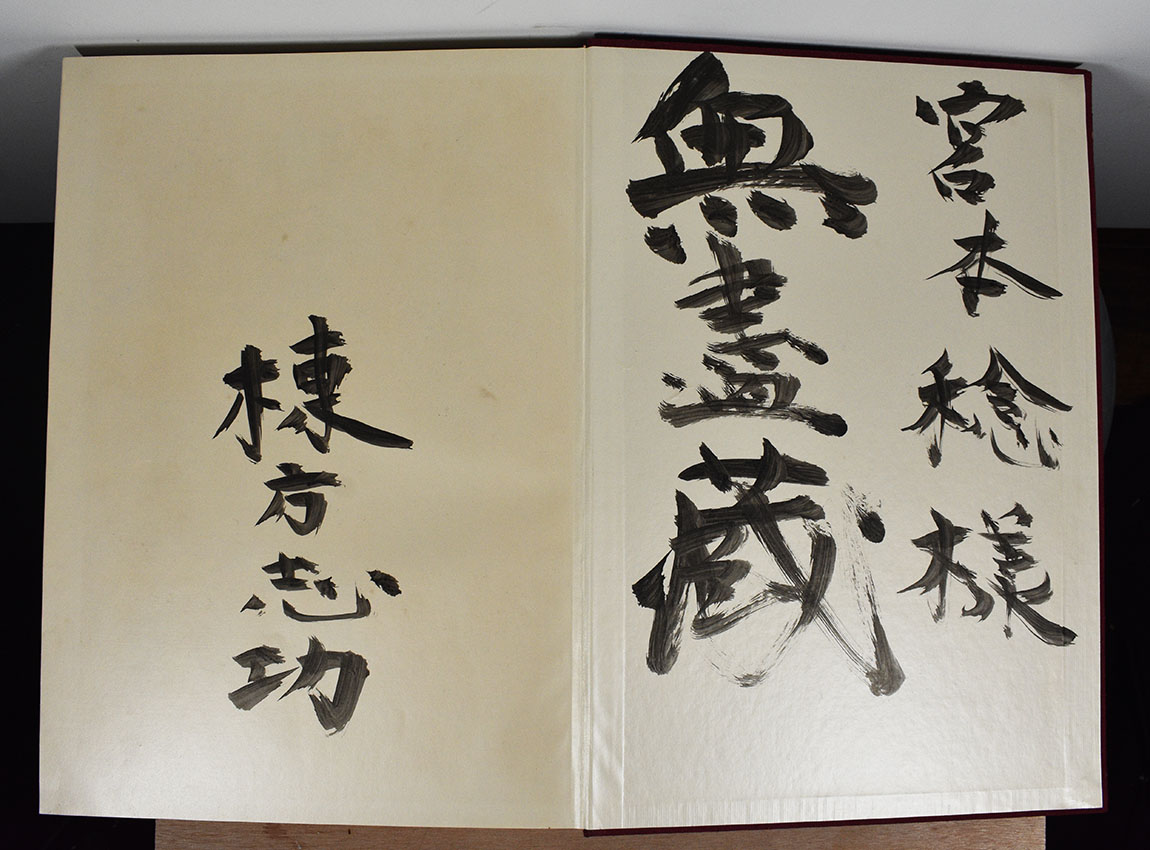 宮本稔様
無盡蔵
棟方志功